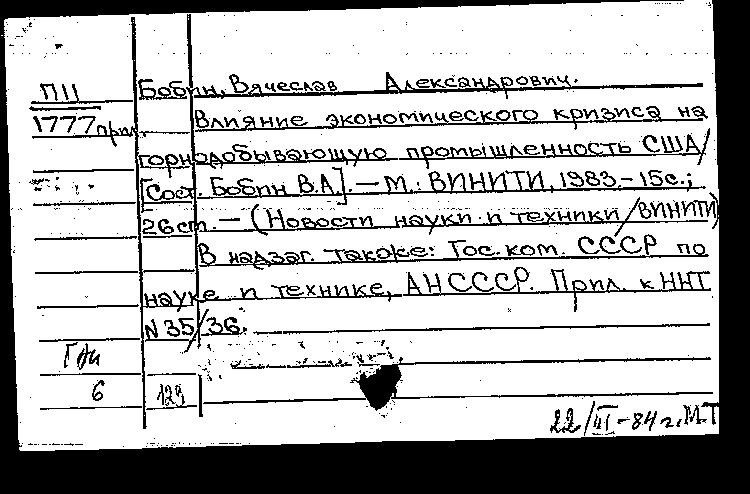 П11 Бобин, Вячеслав Александрович.
1777прил. Влияние экономического кризиса на
горнодобывающую промышленность США/
[Сост. Бобин В.А.]. — М.: ВИНИТИ, 1983 - 15с.;
26см. — (Новости науки и техники/ВИНИТИ)
В надзаг. также: Гос. ком. СССР по
науке и технике, АН СССР. Прил. к ННТ
N 35/36.
6 129
22/III-84г. М.Т